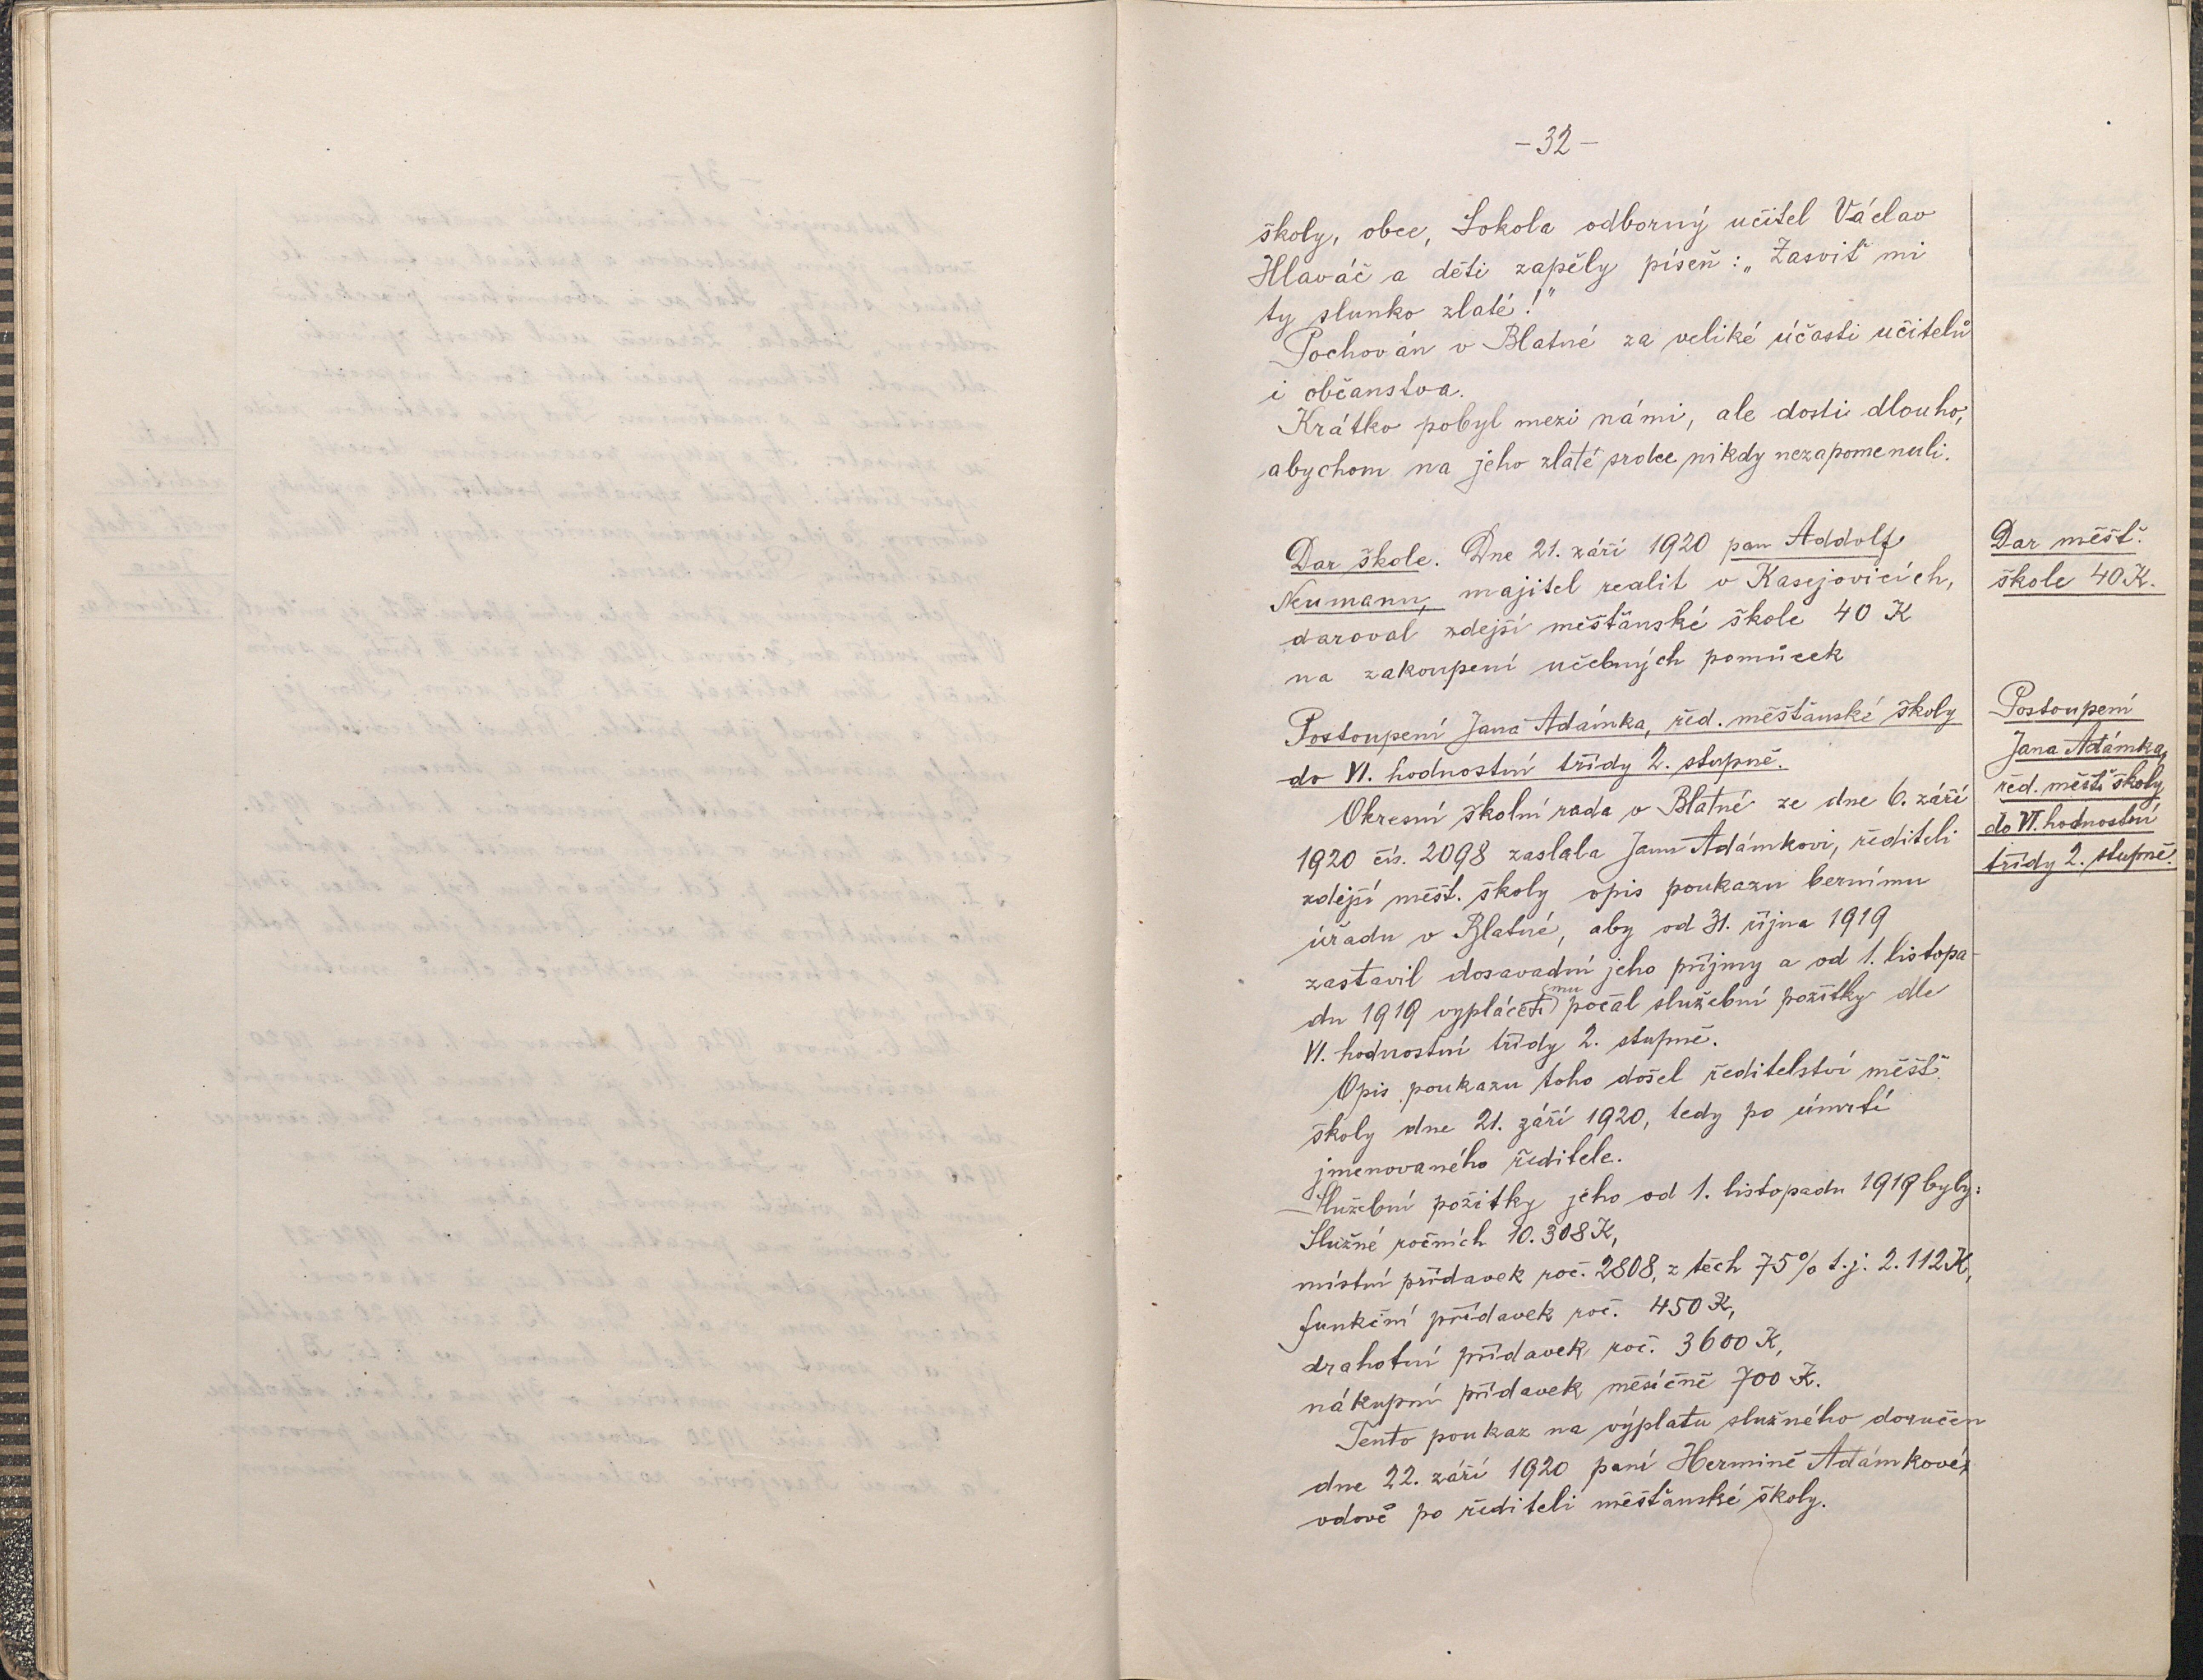 -32-
školy, obce, Sokola odborný učitel Václav
Hlaváč a děti zapěly píseň: „Zasviť mi
ty slunko zlaté!"
Pochován v Blatné za veliké účasti učitelů
i občanstva.
Krátko pobyl mezi námi, ale dosti dlouho,
abychom na jeho zlaté srdce nikdy nezapomenuli.
Dar škole. Dne 21. září 1920 pan Addolf
Neumann, majitel realit v Kasejovicích,
daroval zdejší měšťanské škole 40 K
na zakoupení učebných pomůcek
Dar měšť.
škole 40 K.
Postoupení Jana Adámka, řed. měšťanské školy
do VI. hodnostní třídy 2. stupně.
Okresní školní rada v Blatné ze dne 6. září
1920 čís. 2098 zaslala Janu Adámkovi, řediteli
zdejší měšť. školy opis poukazu bernímu
úřadu v Blatné, aby od 31. října 1919
zastavil dosavadní jeho příjmy a od 1. listopa-
du 1919 vypláceti mu počal služební požitky dle
VI. hodnostní třídy 2. stupně.
Opis poukazu toho došel ředitelství měšť.
školy dne 21. září 1920, tedy po úmrtí
jmenovaného ředitele.
Služební požitky jeho od 1. listopadu 1919 byly:
Služné ročních 10.308 K,
místní přídavek roč. 2808, z těch 75% t.j. 2.112 K,
funkční přídavek roč. 450 K,
drahotní přídavek roč. 3600 K,
nákupní přídavek měsíčně 700 K.
Tento poukaz na výplatu služného doručen
dne 22. září 1920 paní Hermině Adámkové,
vdově po řediteli měšťanské školy.
Postoupení
Jana Adámka,
řed. měšť školy
do VI. hodnostní
třídy 2. stupně.